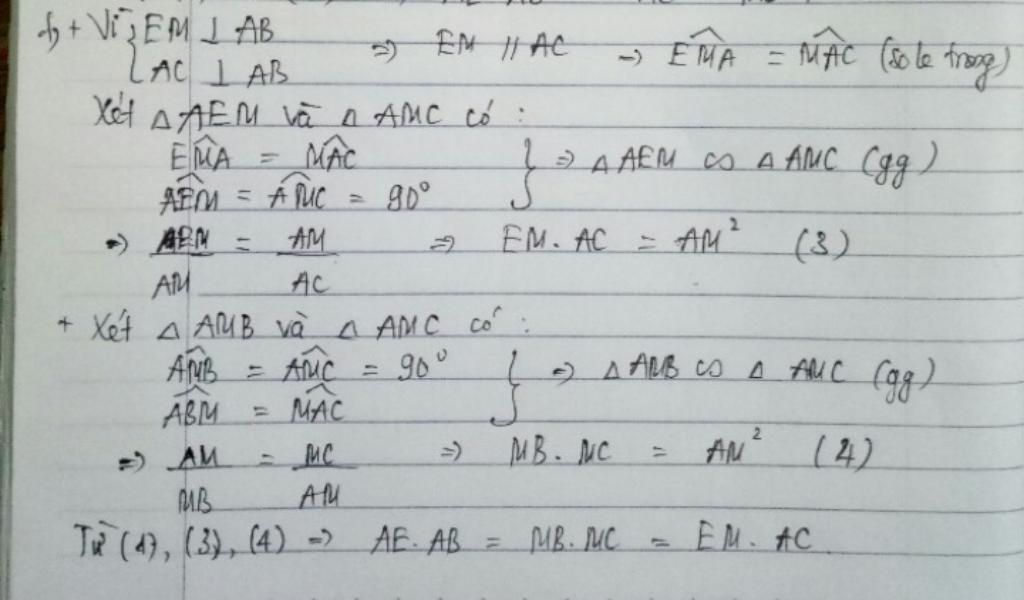 b, + Vì { EM ⊥ AB
AC ⊥ AB
=> EM // AC -> EMA = MAC (so le trong)
Xét △ AEM và △ AMC có :
EMA = MAC
AEM = AMC = 90° } => △ AEM ∽ △ AMC (gg)
=> EM/AM = AM/AC => EM. AC = AM² (3)
+ Xét △ AMB và △ AMC có :
AMB = AMC = 90°
ABM = MAC } => △ AMB ∽ △ AMC (gg)
=> AM/MB = MC/AM => MB. MC = AM² (4)
Từ (1), (3), (4) => AE. AB = MB. MC = EM. AC